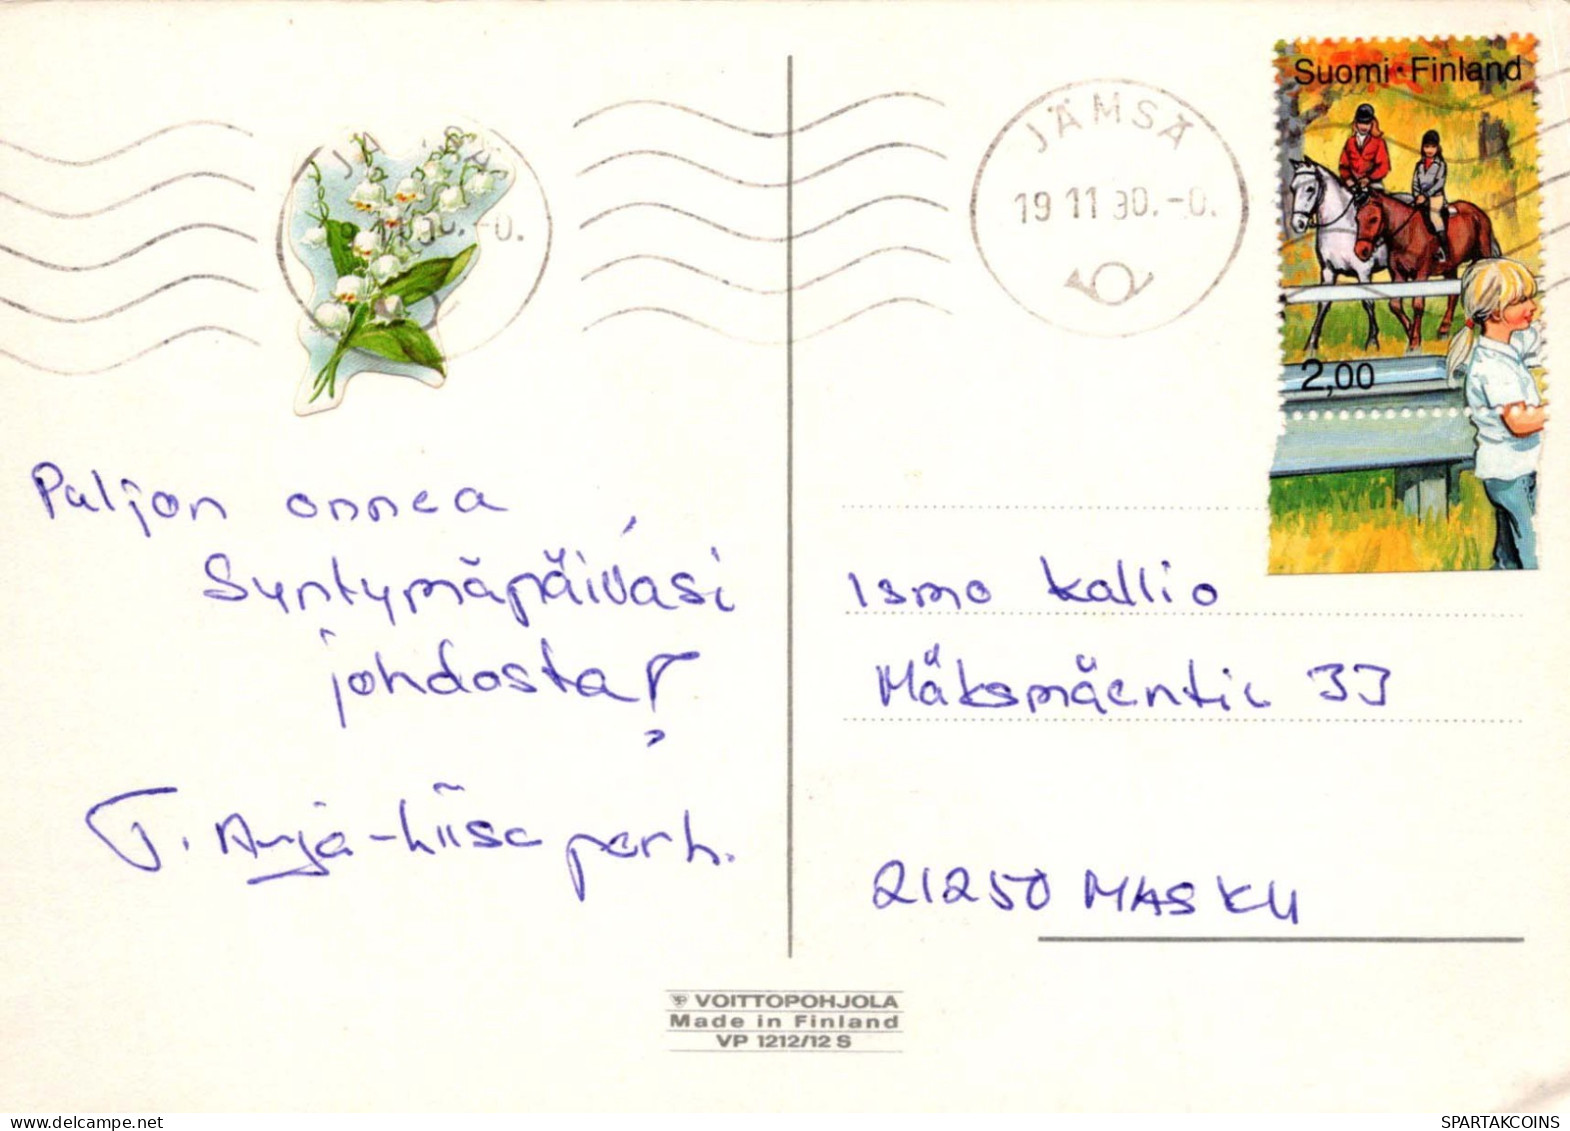 Suomi · Finland
JÄMSÄ
19 11 90.-0.
2,00
Paljon onnea
Syntymäpäiväsi
johdosta!
T. Anja-Liisa perh.
Ismo Kallio
Mäksmäentie 33
21250 MASKU
VOITTOPOHJOLA
Made in Finland
VP 1212/12 S
www.delcampe.net
SPARTAKCOINS